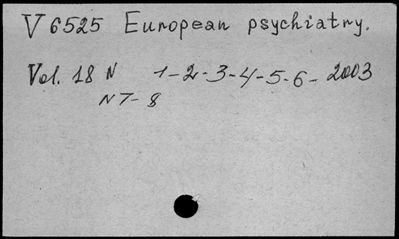 V 6525 European psychiatry.
Vol. 18 N 1-2-3-4-5-6- 2003
N 7-8